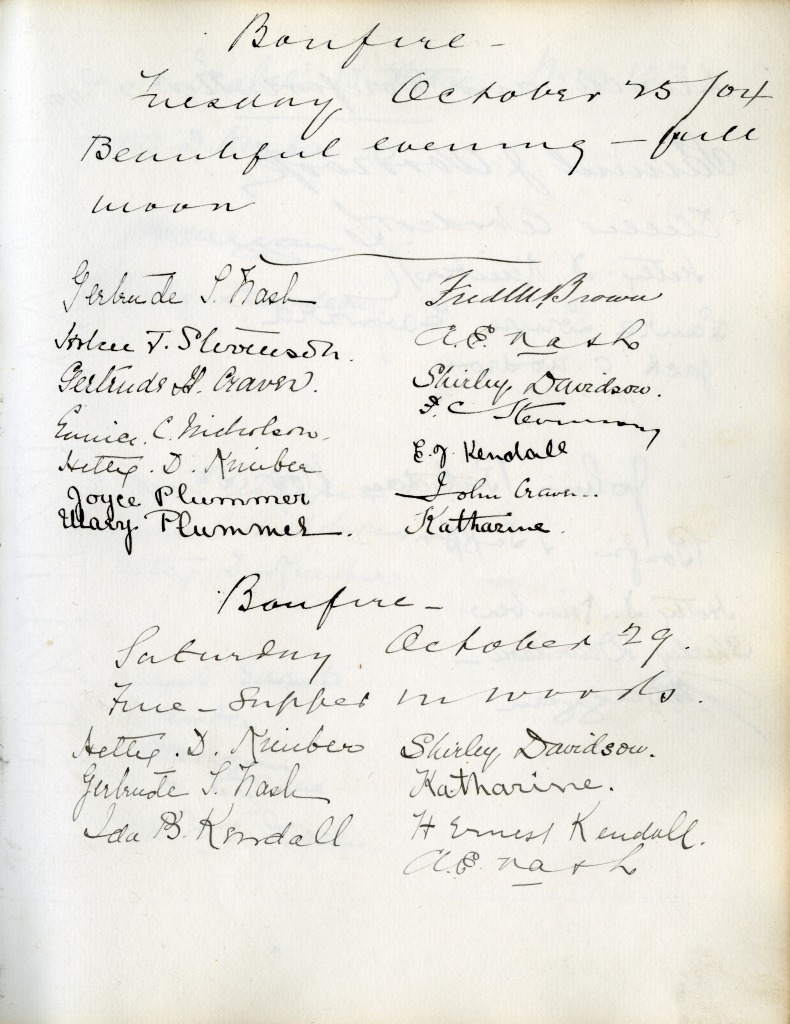 Bonfire -
Tuesday October 25/04
Beautiful evening - full
moon
Gertrude S. Nash
T. Stevenson.
Gertrude H. Craven.
Eunice C. Nicholson.
Hettie D. Kimber
Joyce Plummer
Mary Plummer.
Fred M Brown
A.E. Nash
Shirley Davidson.
F. C Stevenson
E. J. Kendall
John Craven.
Katharine.
Bonfire -
Saturday October 29.
Fine - Supper in woods.
Hettie D. Kimber
Gertrude S. Nash
Ida B. Kendall
Shirley Davidson.
Katharine.
H Ernest Kendall.
A.E. Nash